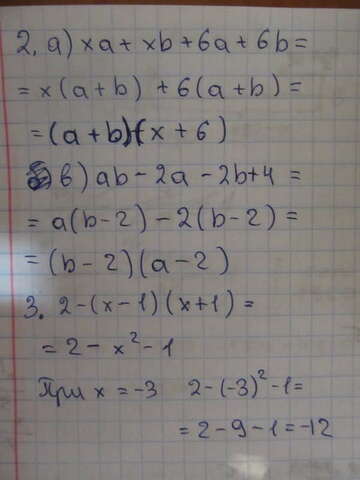 2. а) xa + xb + 6a + 6b =
= x(a + b) + 6(a + b) =
= (a + b)(x + 6)
в) ab - 2a - 2b + 4 =
= a(b - 2) - 2(b - 2) =
= (b - 2)(a - 2)
3. 2 - (x - 1)(x + 1) =
= 2 - x² - 1
При x = -3 2 - (-3)² - 1 =
= 2 - 9 - 1 = -12